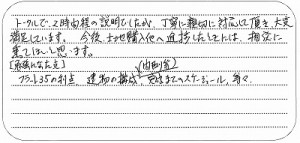 トータルで、2時間程の説明でしたが、丁寧に親切に対応して頂き、大変
満足しています。今後、土地購入他へ進捗したしては、相談に
来てほしいと思います。
[勉強になった点]
(内断等)
フラット35の利点、建物の構成、完成までのスケジュール、等々。